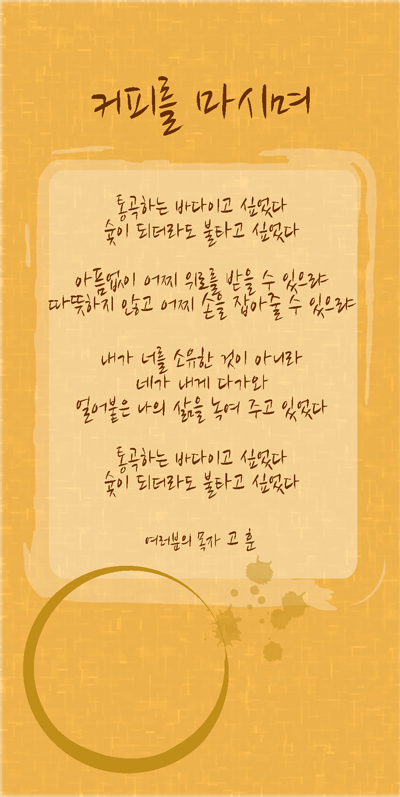 커피를 마시며
통곡하는 바다이고 싶었다
숯이 되더라도 불타고 싶었다
아픔없이 어찌 위로를 받을 수 있으랴
따뜻하지 않고 어찌 손을 잡아줄 수 있으랴
내가 너를 소유한 것이 아니라
네가 내게 다가와
얼어붙은 나의 삶을 녹여 주고 있었다
통곡하는 바다이고 싶었다
숯이 되더라도 불타고 싶었다
여러분의 목자 고 훈